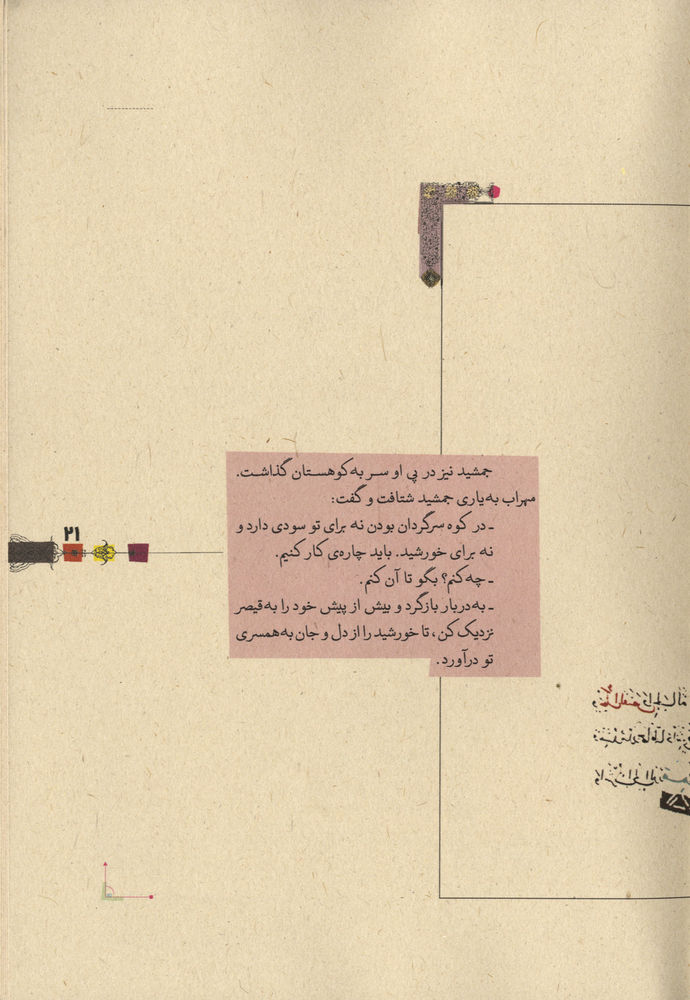 جمشید نیز در پی او سر به کوهستان گذاشت.
مهراب به‌یاری جمشید شتافت و گفت:
ـ در کوه سرگردان بودن نه برای تو سودی دارد و
نه برای خورشید. باید چاره‌ی کار کنیم.
ـ چه کنم؟ بگو تا آن کنم.
ـ به‌دربار بازگرد و بیش از پیش خود را به قیصر
نزدیک کن، تا خورشید را از دل و جان به همسری
تو درآورد.
۲۱